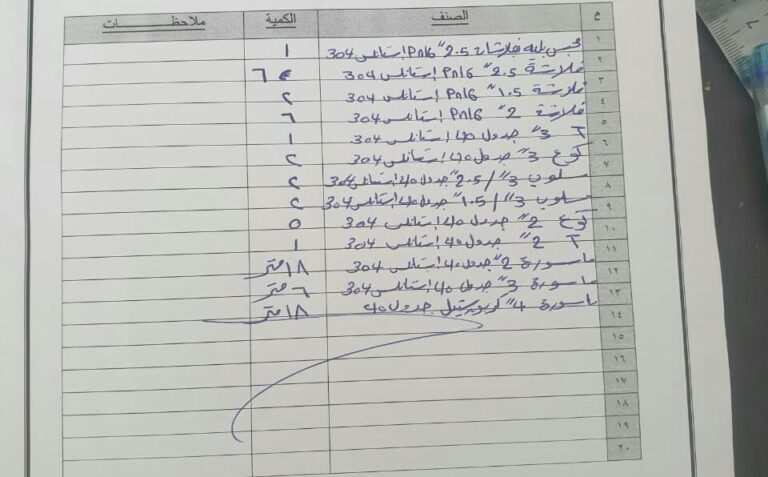 م الصنف الكمية ملاحظــــــات
١ محبس بلية فلانشات 2.5" Pn16 استانلس 304 ١
٢ فلانشة 2.5" Pn16 استانلس 304 ٦
٣ فلانشة 1.5" Pn16 استانلس 304 ٢
٤ فلانشة 2" Pn16 استانلس 304 ٦
٥ T 3" جدول 40 استانلس 304 ١
٦ كوع 3" جدول 40 استانلس 304 ٢
٧ مسلوب 3"/2.5" جدول 40 استانلس 304 ٢
٨ مسلوب 3"/1.5" جدول 40 استانلس 304 ٢
٩ كوع 2" جدول 40 استانلس 304 ٥
١٠ T 2" جدول 40 استانلس 304 ١
١١ ماسورة 2" جدول 40 استانلس 304 ١٨ متر
١٢ ماسورة 3" جدول 40 استانلس 304 ٦ متر
١٣ ماسورة 4" كربون ستيل جدول 40 ١٨ متر
١٤
١٥
١٦
١٧
١٨
١٩
٢٠